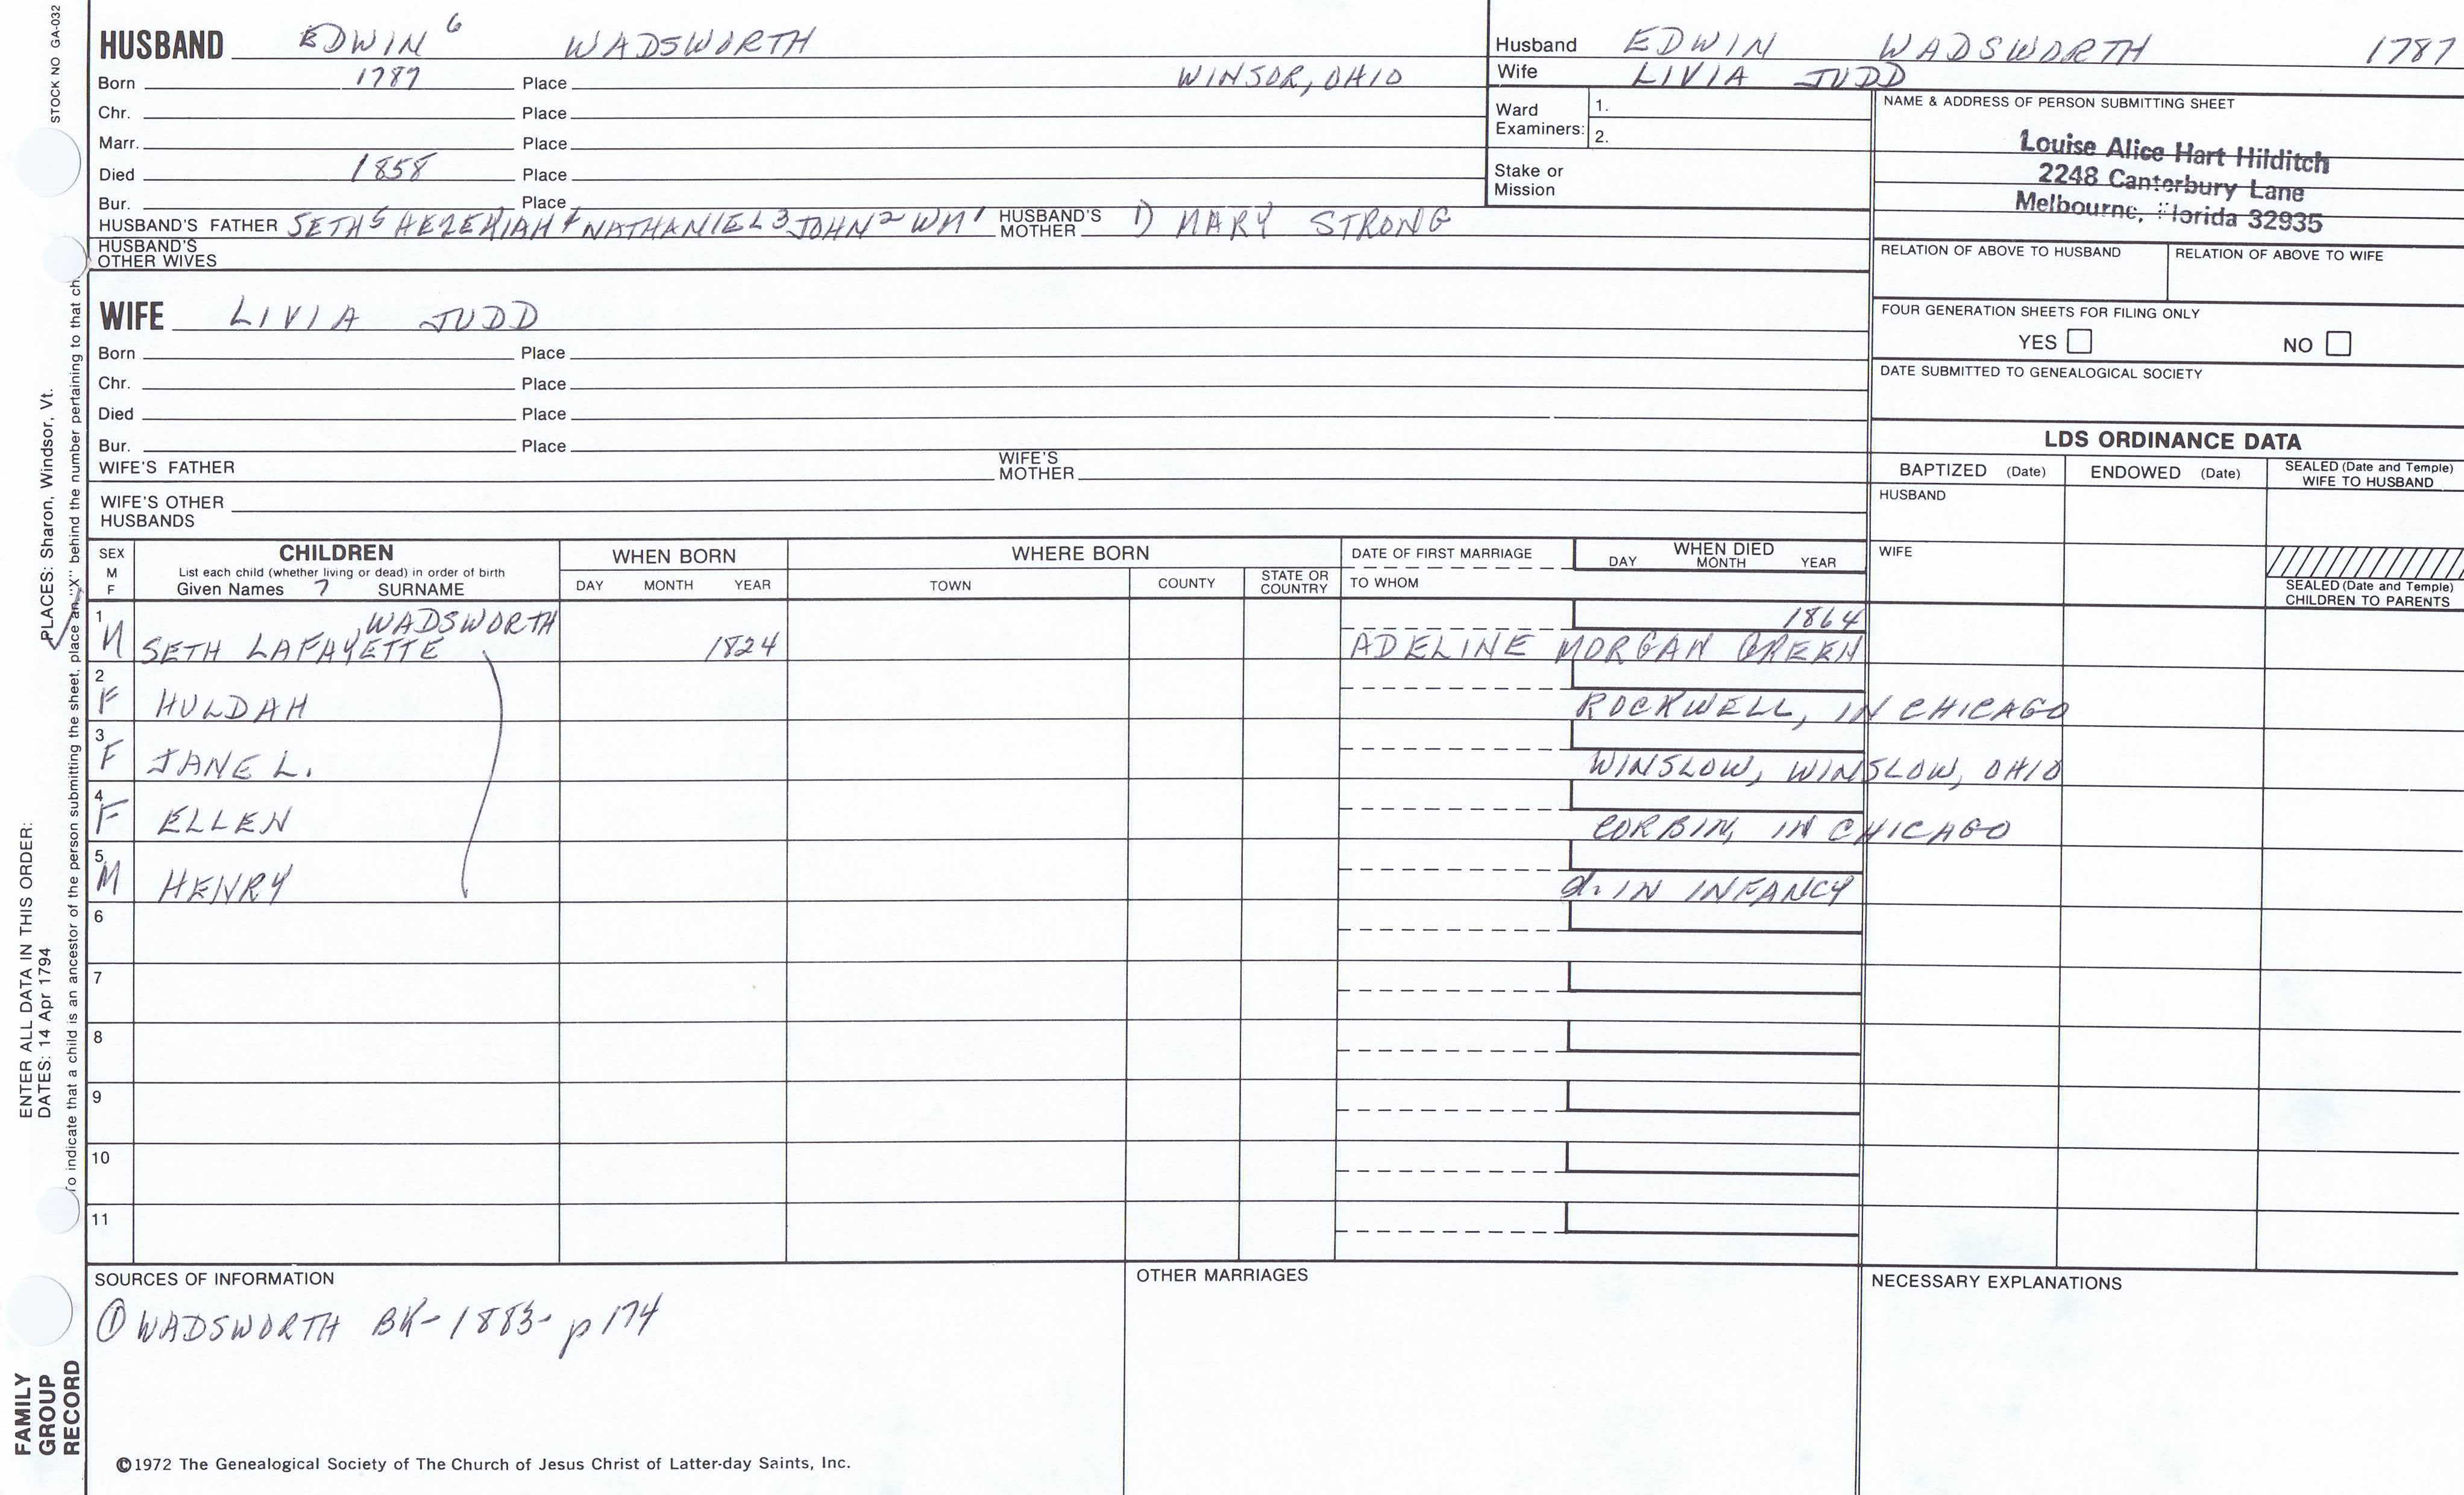 STOCK NO GA-032
HUSBAND EDWIN 6 WADSWORTH
Born 1787 Place WINSOR, OHIO
Chr. Place
Marr. Place
Died 1858 Place
Bur. Place
HUSBAND'S FATHER SETH 5 HEZEKIAH 4 NATHANIEL 3 JOHN 2 WM 1 HUSBAND'S MOTHER 1) MARY STRONG
HUSBAND'S OTHER WIVES
WIFE LIVIA JUDD
Born Place
Chr. Place
Died Place
Bur. Place
WIFE'S FATHER WIFE'S MOTHER
WIFE'S OTHER HUSBANDS
Husband EDWIN WADSWORTH 1787
Wife LIVIA JUDD
Ward Examiners: 1.
2.
Stake or Mission
NAME & ADDRESS OF PERSON SUBMITTING SHEET
Louise Alice Hart Hilditch
2248 Canterbury Lane
Melbourne, Florida 32935
RELATION OF ABOVE TO HUSBAND RELATION OF ABOVE TO WIFE
FOUR GENERATION SHEETS FOR FILING ONLY
YES NO
DATE SUBMITTED TO GENEALOGICAL SOCIETY
LDS ORDINANCE DATA
BAPTIZED (Date) ENDOWED (Date) SEALED (Date and Temple) WIFE TO HUSBAND
HUSBAND
WIFE
SEALED (Date and Temple) CHILDREN TO PARENTS
SEX M F
CHILDREN
List each child (whether living or dead) in order of birth
Given Names 7 SURNAME
WHEN BORN
DAY MONTH YEAR
WHERE BORN
TOWN COUNTY STATE OR COUNTRY
DATE OF FIRST MARRIAGE
TO WHOM
WHEN DIED
DAY MONTH YEAR
1 M SETH LAFAYETTE WADSWORTH 1824 1864
ADELINE MORGAN GREEN
2 F HULDAH ROCKWELL, IN CHICAGO
3 F JANE L. WINSLOW, WINSLOW, OHIO
4 F ELLEN CORBIN, IN CHICAGO
5 M HENRY d. IN INFANCY
6
7
8
9
10
11
SOURCES OF INFORMATION
① WADSWORTH BK-1883- p 174
OTHER MARRIAGES
NECESSARY EXPLANATIONS
©1972 The Genealogical Society of The Church of Jesus Christ of Latter-day Saints, Inc.
FAMILY GROUP RECORD
ENTER ALL DATA IN THIS ORDER:
DATES: 14 Apr 1794
PLACES: Sharon, Windsor, Vt.
To indicate that a child is an ancestor of the person submitting the sheet, place an "X" behind the number pertaining to that ch